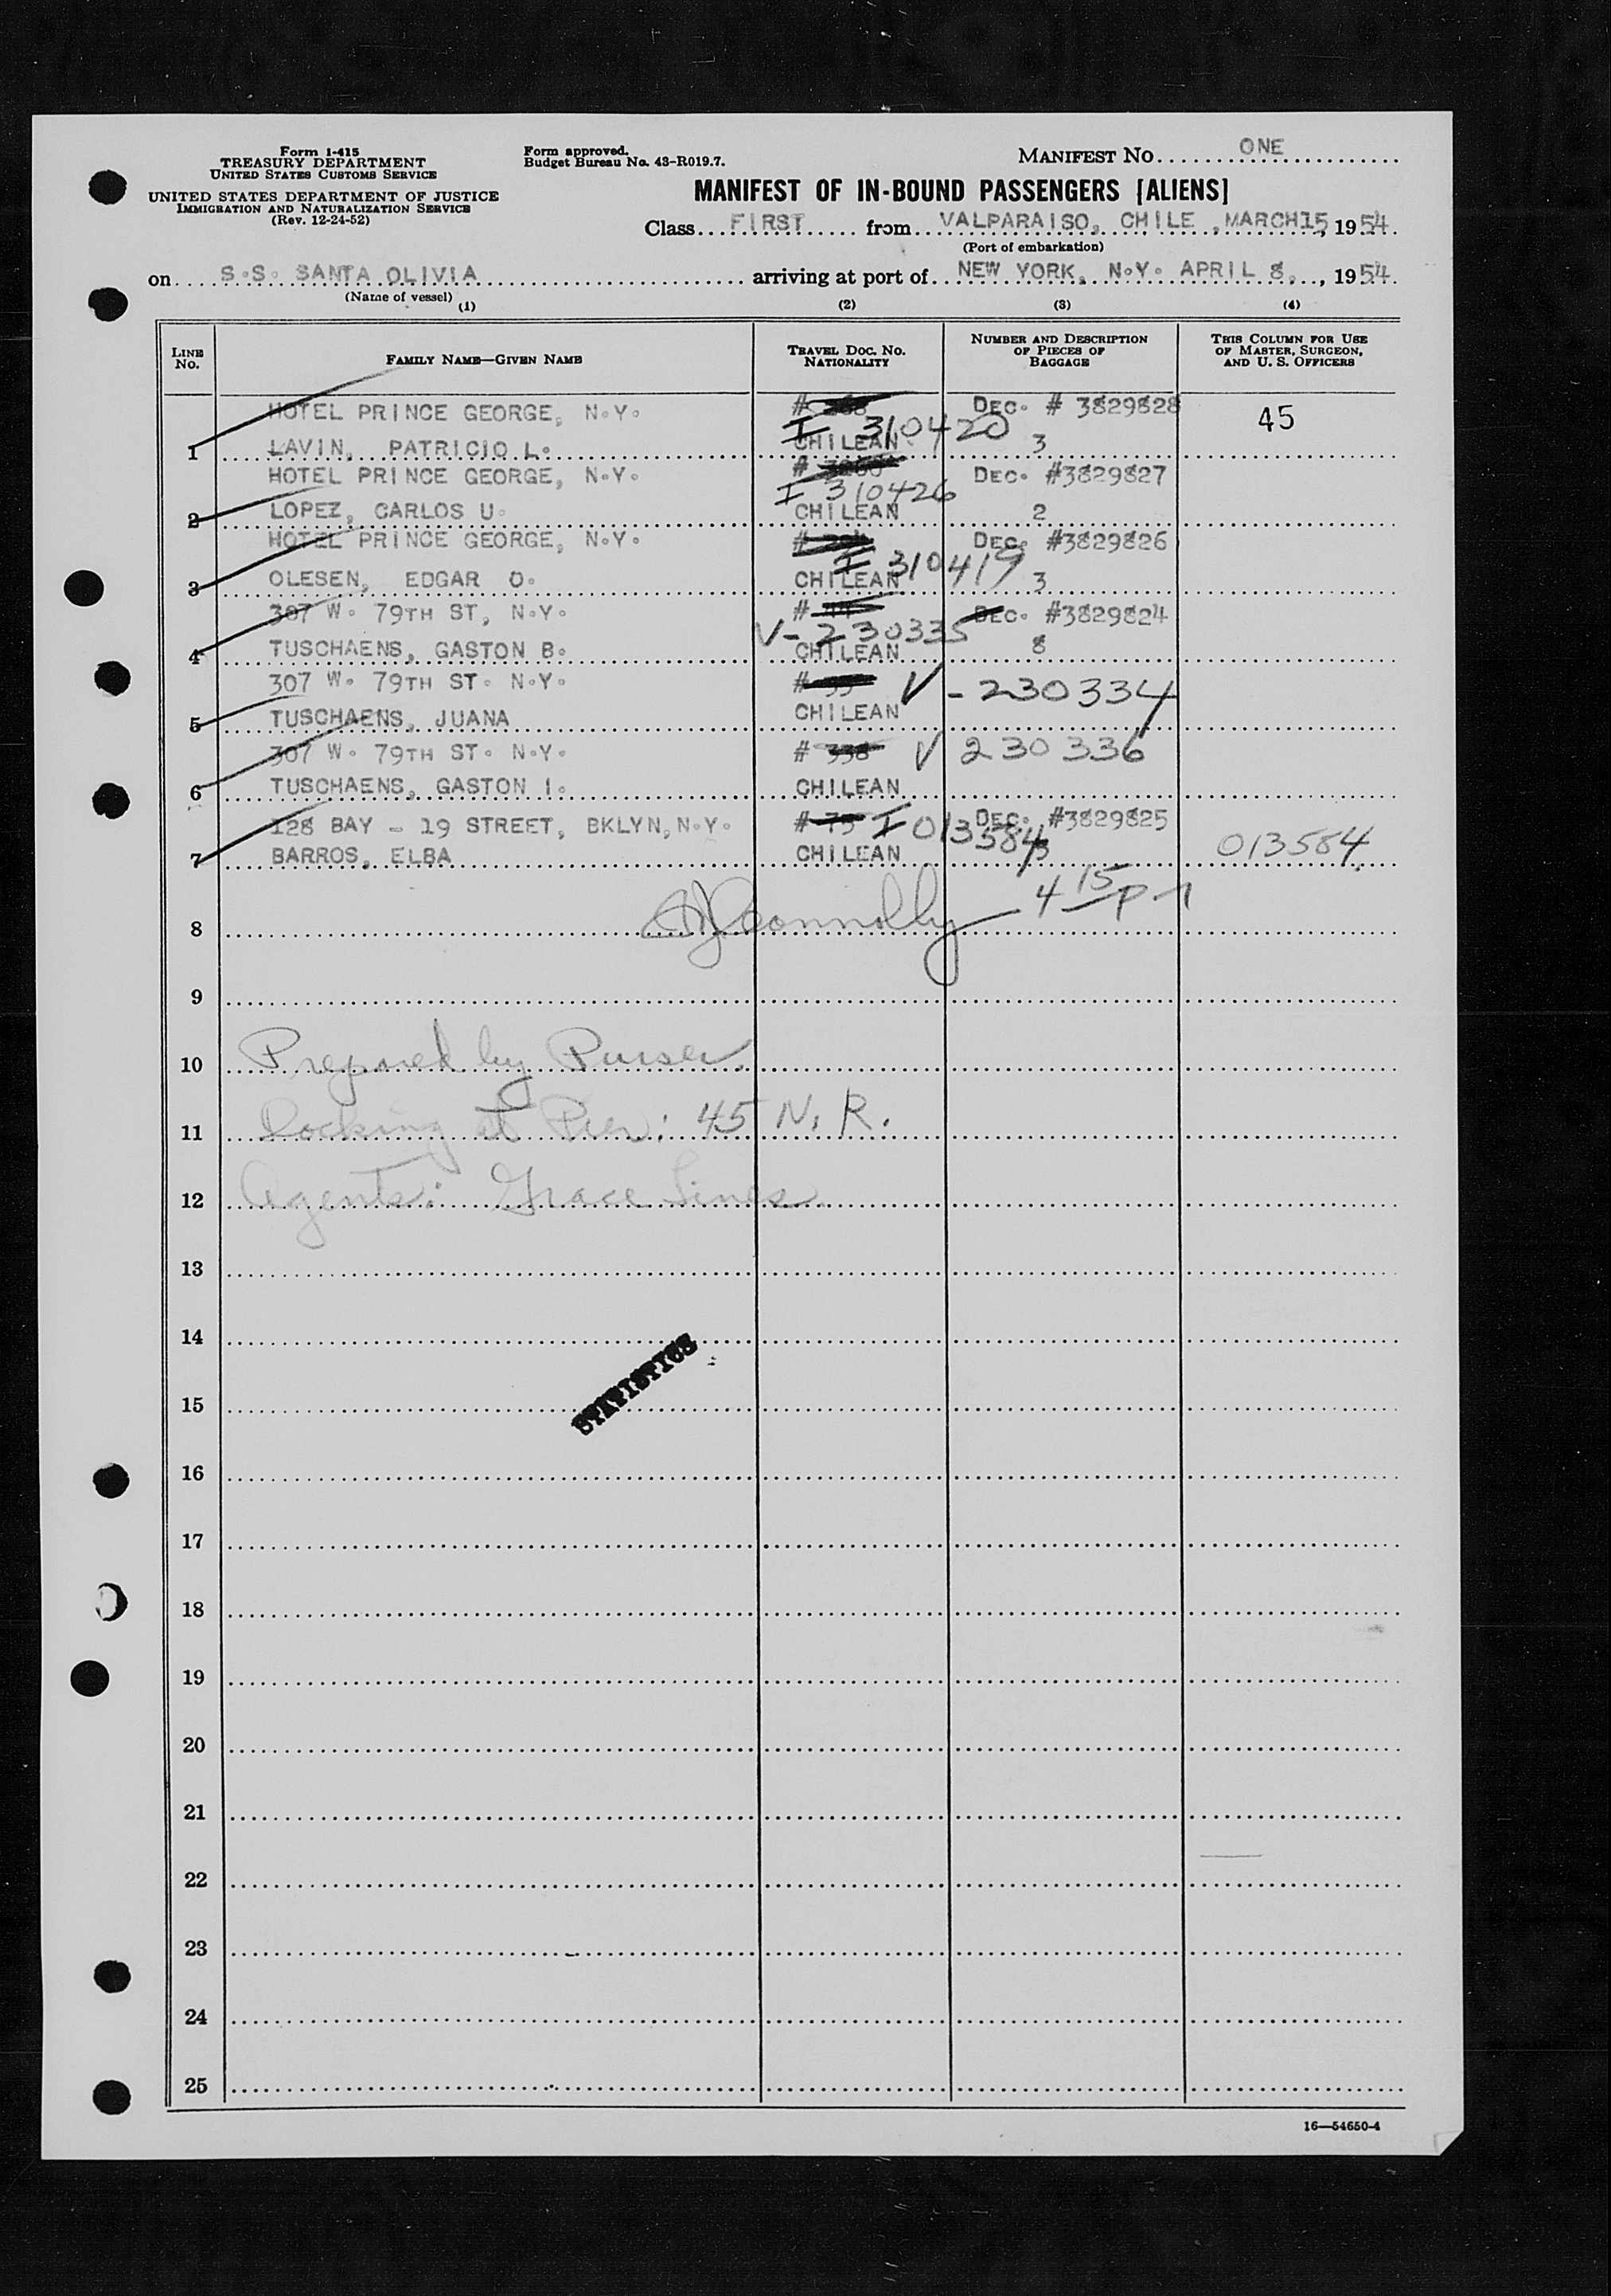 Form I-415
TREASURY DEPARTMENT
UNITED STATES CUSTOMS SERVICE
UNITED STATES DEPARTMENT OF JUSTICE
IMMIGRATION AND NATURALIZATION SERVICE
(Rev. 12-24-52)
Form approved.
Budget Bureau No. 43-R019.7.
MANIFEST No. ONE
MANIFEST OF IN-BOUND PASSENGERS [ALIENS]
Class FIRST from VALPARAISO, CHILE, MARCH 15, 1954.
(Port of embarkation)
on S.S. SANTA OLIVIA arriving at port of NEW YORK, N.Y. APRIL 8, 1954.
(Name of vessel)
(1) (2) (3) (4)
LINE No. FAMILY NAME—GIVEN NAME TRAVEL DOC. NO. NATIONALITY NUMBER AND DESCRIPTION OF PIECES OF BAGGAGE THIS COLUMN FOR USE OF MASTER, SURGEON, AND U. S. OFFICERS
HOTEL PRINCE GEORGE, N.Y. # DEC. # 3829828 45
I 310420
1 LAVIN, PATRICIO L. CHILEAN 3
HOTEL PRINCE GEORGE, N.Y. # DEC. #3829827
I 310426
2 LOPEZ, CARLOS U. CHILEAN 2
HOTEL PRINCE GEORGE, N.Y. # DEC. #3829826
I 310419
3 OLESEN, EDGAR O. CHILEAN 3
307 W. 79TH ST, N.Y. # DEC. #3829824
V-230335
4 TUSCHAENS, GASTON B. CHILEAN 8
307 W. 79TH ST. N.Y. # 55 V-230334
5 TUSCHAENS, JUANA CHILEAN
307 W. 79TH ST. N.Y. # 338 V 230336
6 TUSCHAENS, GASTON I. CHILEAN
128 BAY - 19 STREET, BKLYN, N.Y. # 75 I 013584 DEC. #3829825
7 BARROS, ELBA CHILEAN 3 013584
8 Connolly 4 15 P
9
10 Prepared by Purser.
11 Docking at Pier: 45 N. R.
12 Agents: Grace Lines
13
14
STATISTICS
15
16
17
18
19
20
21
22
23
24
25
16—54650-4